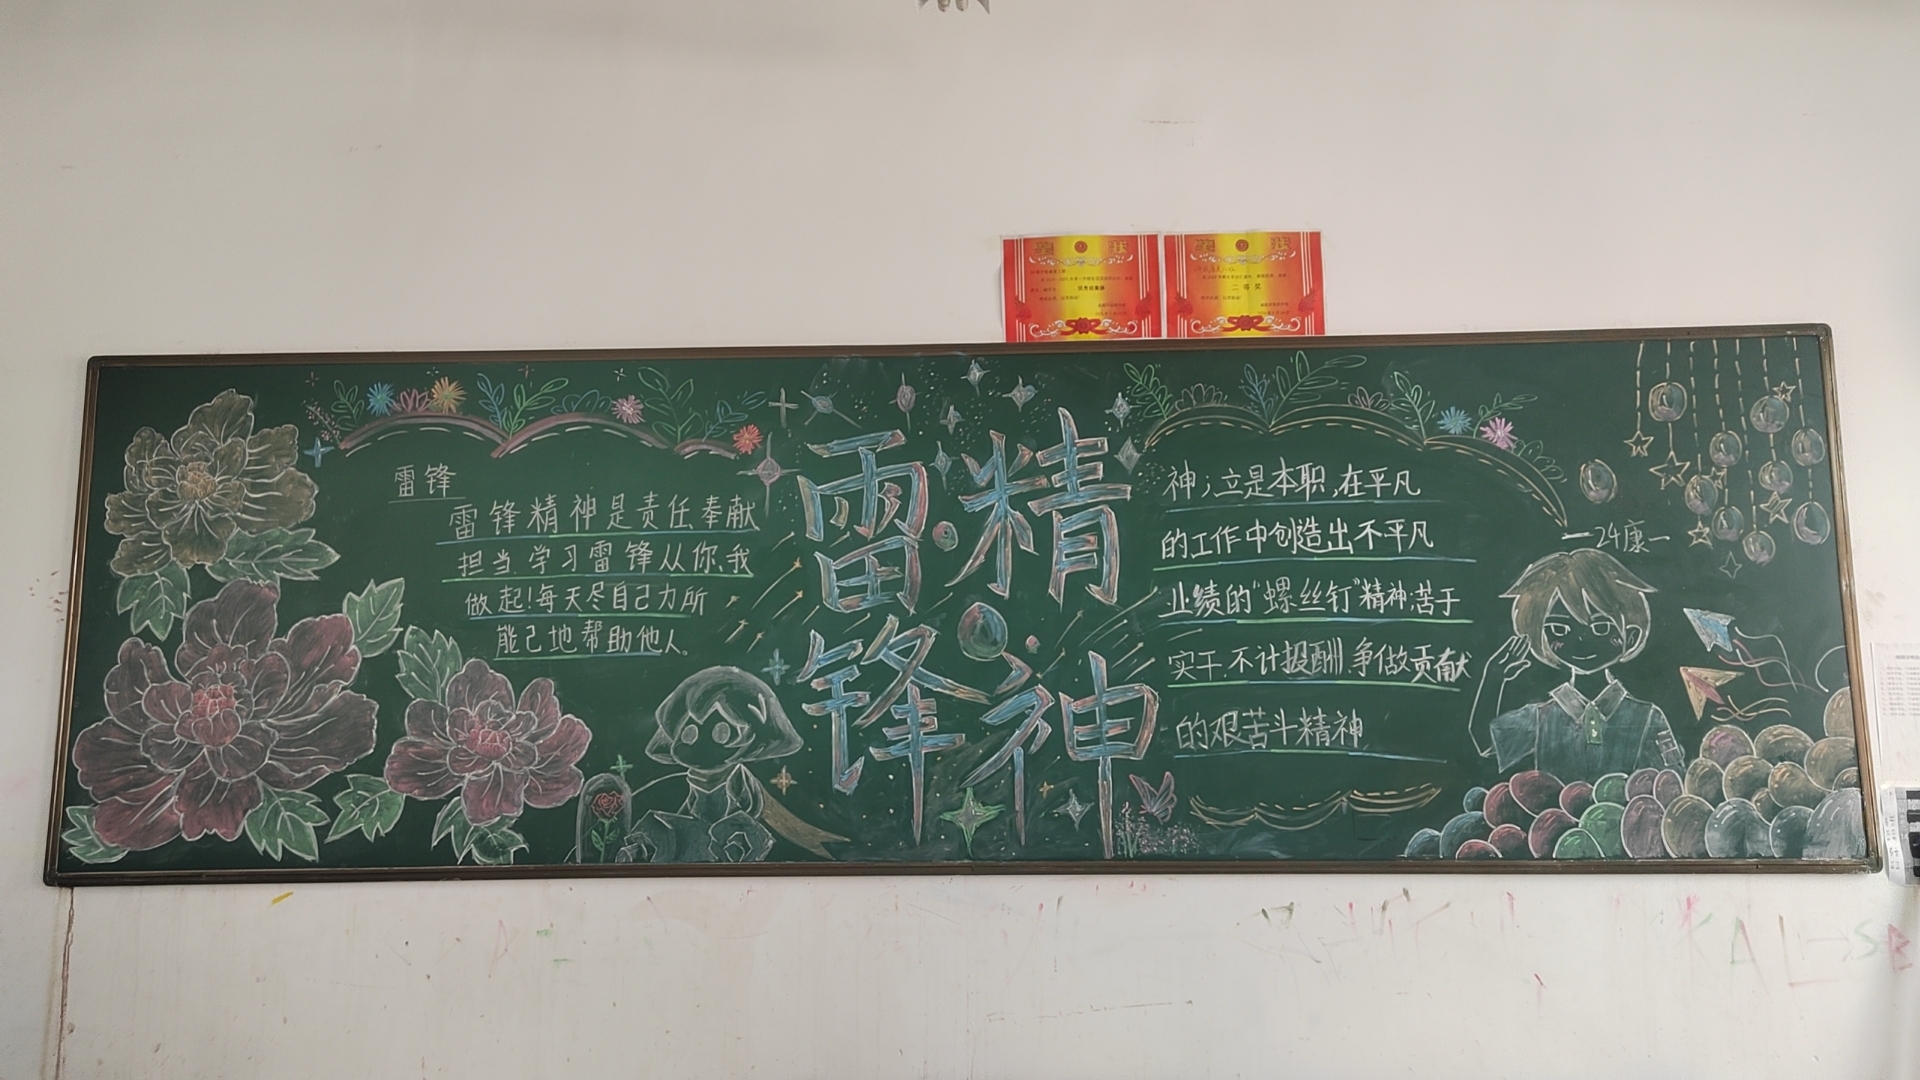 奖 状
奖 状
二等奖
雷锋
雷锋精神是责任奉献
担当,学习雷锋从你、我
做起!每天尽自己力所
能己地帮助他人。
雷锋
精神
神;立是本职,在平凡
的工作中创造出不平凡
业绩的“螺丝钉”精神;苦于
实干,不计报酬,争做贡献
的艰苦斗精神
一24康一